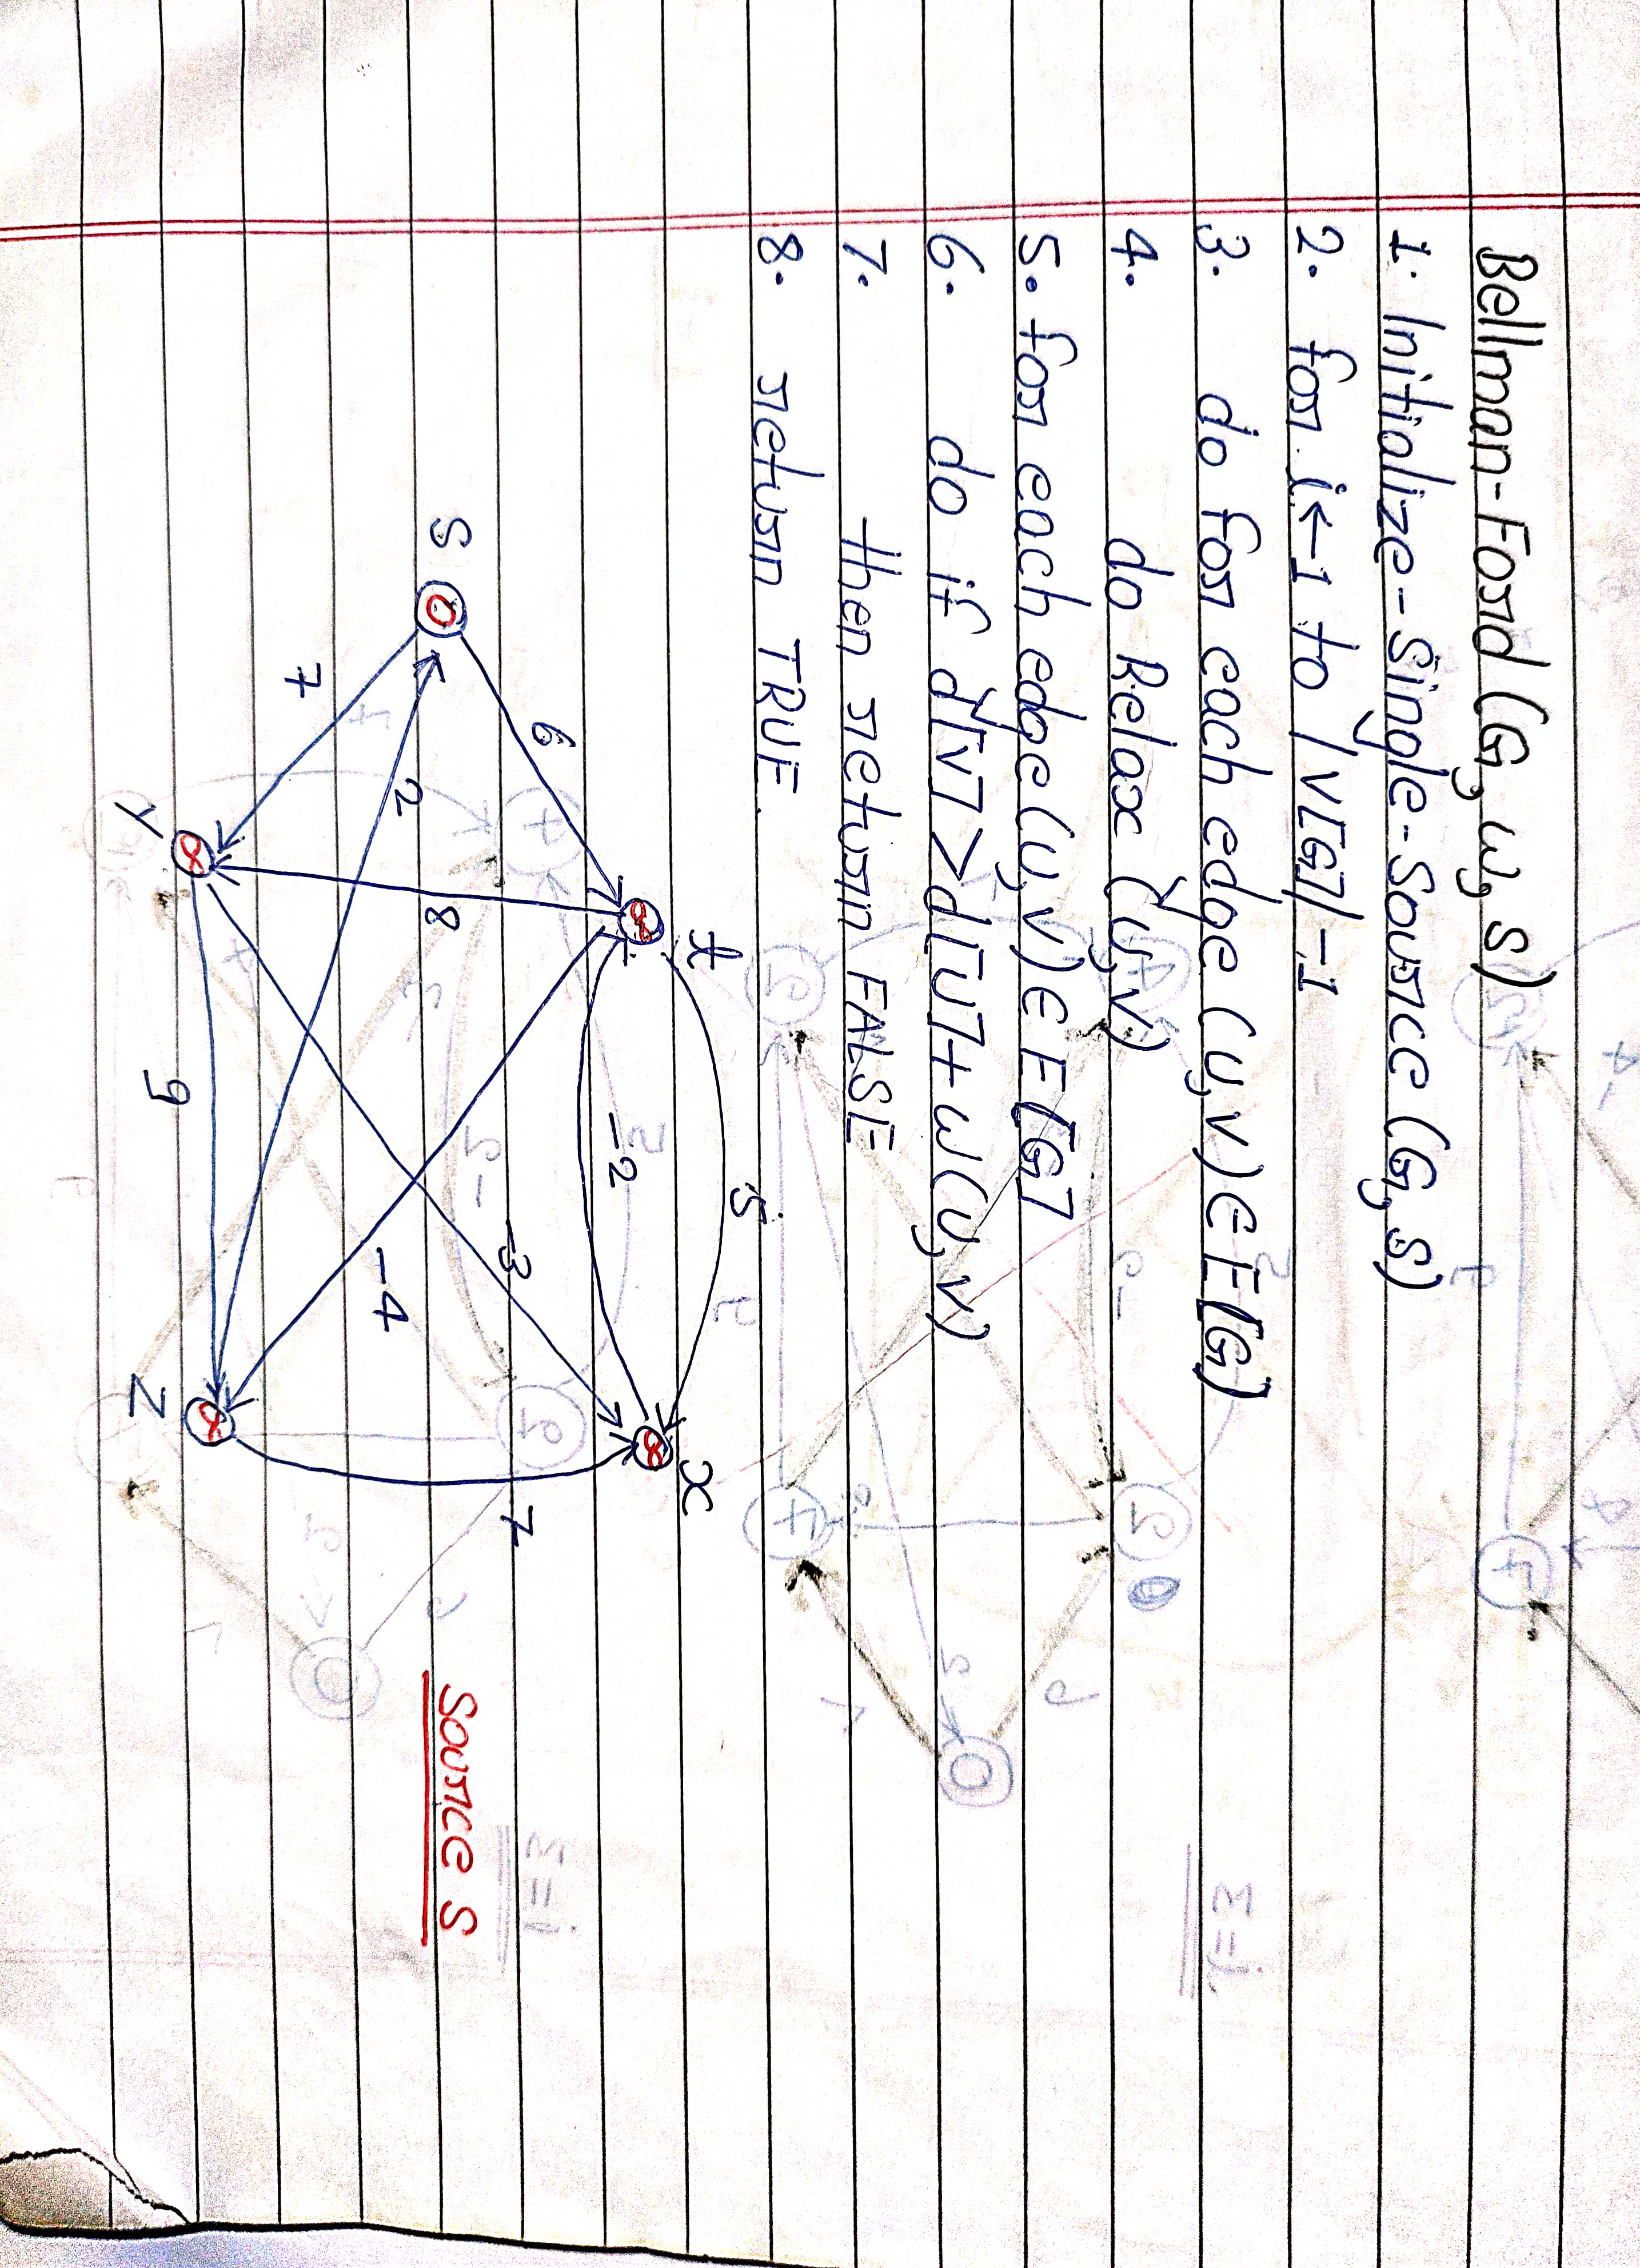 Bellman-Ford (G, w, s)
1. Initialize-Single-Source (G, s)
2. for i← 1 to |V[G]|-1
3. do for each edge (u, v) ∈ E[G]
4. do Relax (u, v)
5. for each edge (u, v) ∈ E[G]
6. do if d[v] > d[u] + w(u, v)
7. then return FALSE
8. return TRUE.
t
5
x
∞
∞
6
-2
S
0
8
-3
7
Source S
2
-4
7
∞
∞
Y
9
Z